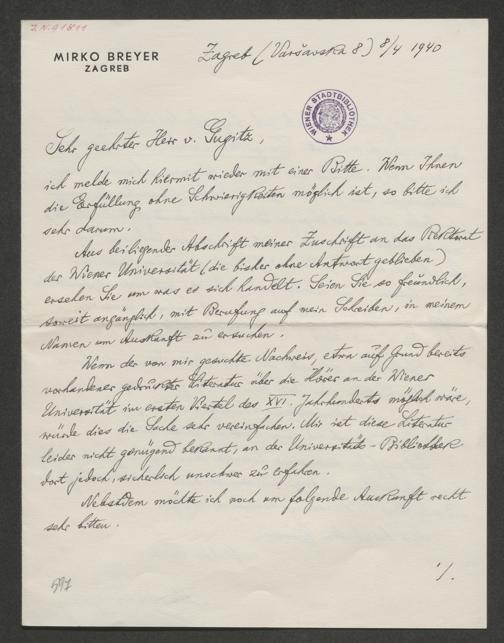 Z.N. 91811
MIRKO BREYER
ZAGREB
Zagreb (Varšavska 8) 8/4 1940
WIENER STADTBIBLIOTHEK
Sehr geehrter Herr v. Gugitz,
ich melde mich hiermit wieder mit einer Bitte. Wenn Ihnen
die Erfüllung ohne Schwierigkeiten möglich ist, so bitte ich
sehr darum.
Aus beiliegender Abschrift meiner Zuschrift an das Rektorat
der Wiener Universität (die bisher ohne Antwort geblieben)
ersehen Sie um was es sich handelt. Seien Sie so freundlich,
soweit angänglich, mit Berufung auf mein Schreiben, in meinem
Namen um Auskunft zu ersuchen.
Wenn der von mir gesuchte Nachweis, etwa auf Grund bereits
vorhandener gedruckter Literatur über die Hörer an der Wiener
Universität im ersten Viertel des XVI. Jahrhunderts möglich wäre,
würde dies die Sache sehr vereinfachen. Mir ist diese Literatur
leider nicht genügend bekannt, an der Universitäts-Bibliothek
dort jedoch, sicherlich unschwer zu erfahren.
Nebstdem möchte ich noch um folgende Auskunft recht
sehr bitten.
./.
597